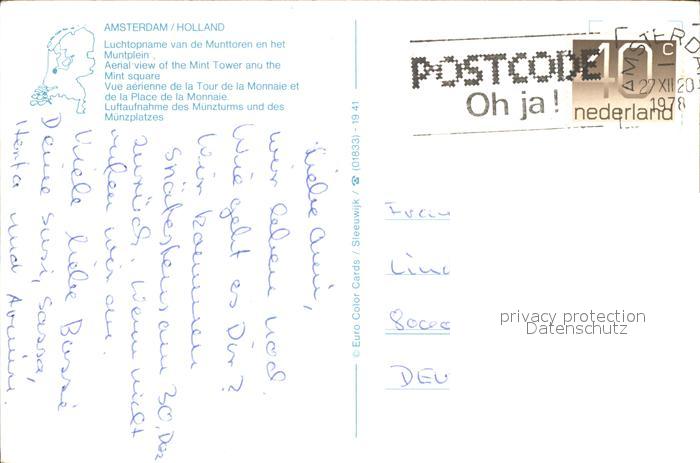 AMSTERDAM / HOLLAND
Luchtopname van de Munttoren en het
Muntplein.
Aerial view of the Mint Tower and the
Mint square
Vue aérienne de la Tour de la Monnaie et
de la Place de la Monnaie.
Luftaufnahme des Münzturms und des
Münzplatzes
Liebe Omi,
wir leben noch.
Wie geht es Dir?
Wir kommen
spätestens am 30. Dez
zurück. Wenn nicht
rufen wir an.
Viele liebe Bussi
Deine Susi, Sassa,
Herta und Armin.
© Euro Color Cards / Sleeuwijk / ☎ (01833) - 19 41
POSTCODE
Oh ja!
AMSTERDA
27 XII 20
1978
40 c
nederland
DEU
privacy protection
Datenschutz